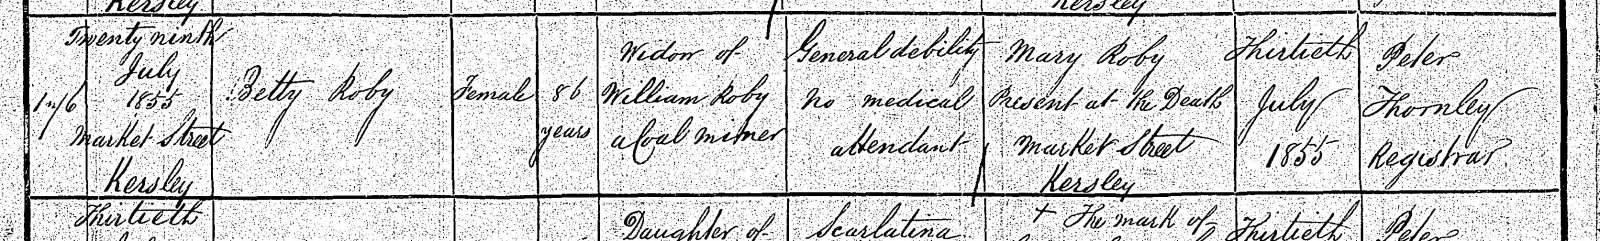 Kersley
Kersley
Twenty ninth
July
1855
Market Street
Kersley
Betty Roby
Female
86
years
Widow of
William Roby
a Coal miner
General debility
no medical
attendant
Mary Roby
Present at the Death
Market Street
Kersley
Thirtieth
July
1855
Peter
Thornley
Registrar
Thirtieth
Daughter of
Scarlatina
+ The mark of
Thirtieth
Peter